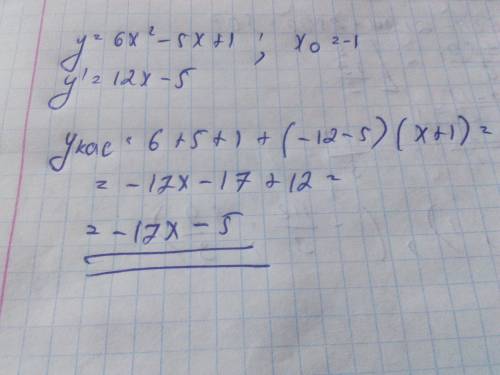 y = 6x² - 5x + 1 ; x₀ = -1
y' = 12x - 5
yкас = 6 + 5 + 1 + (-12 - 5)(x + 1) =
= -17x - 17 + 12 =
= -17x - 5